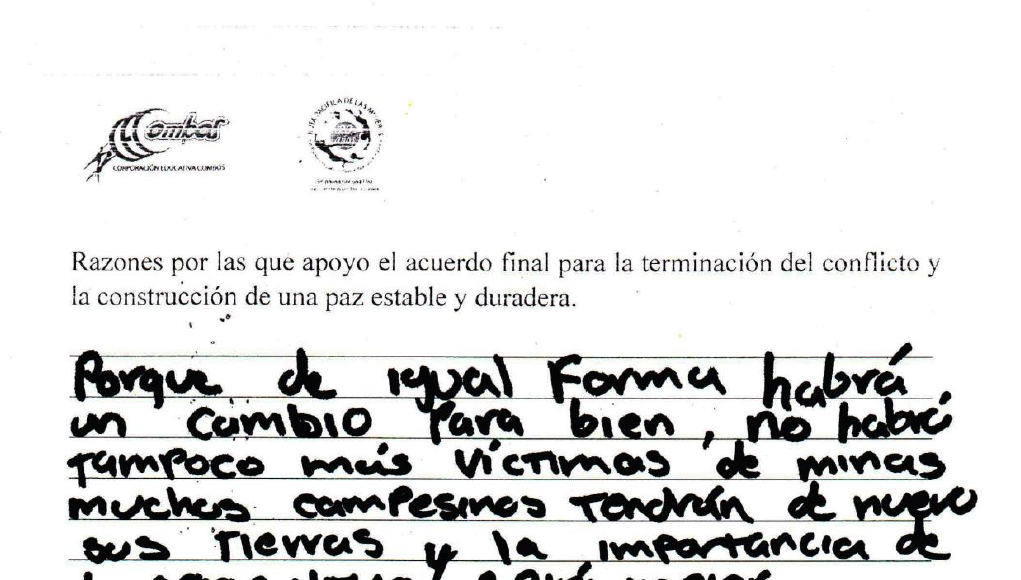 Combos
CORPORACIÓN EDUCATIVA COMBOS
RUTA PACÍFICA DE LAS MUJERES
Razones por las que apoyo el acuerdo final para la terminación del conflicto y
la construcción de una paz estable y duradera.
Porque de igual Forma habrá
un cambio Para bien, no habrá
tampoco más víctimas de minas
muchos campesinos tendrán de nuevo
sus tierras y la importancia de